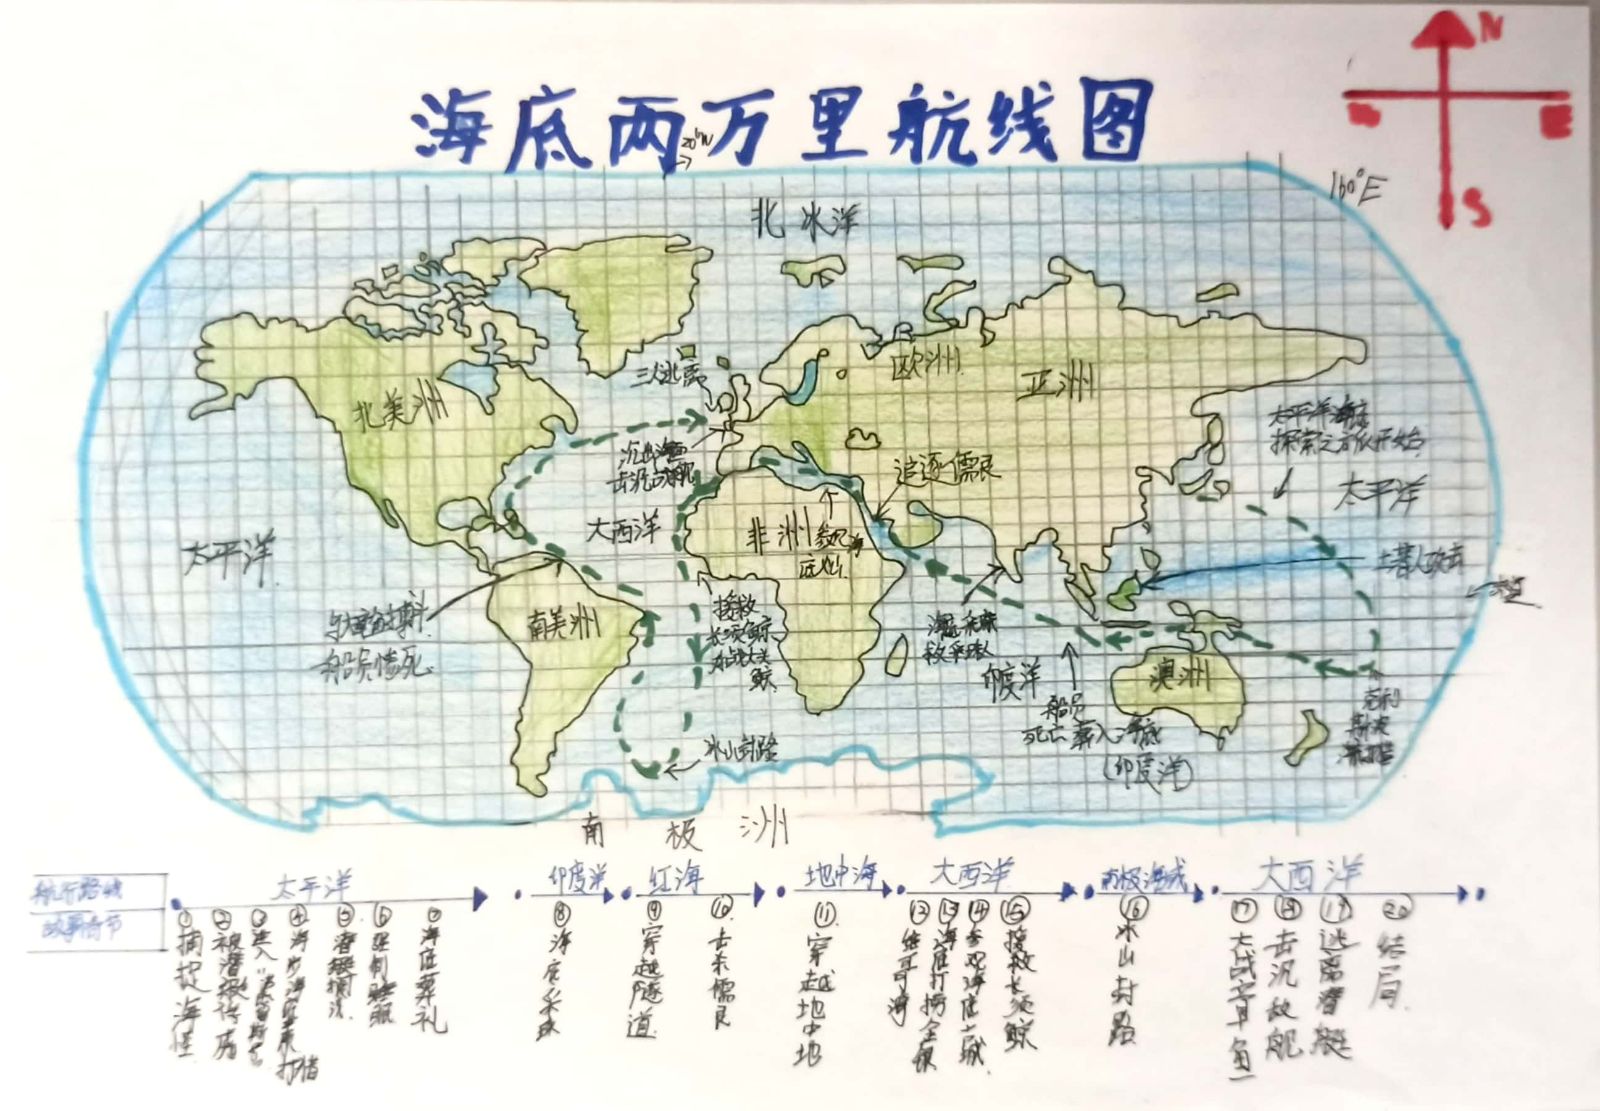 海底两万里航线图
N
S
20°W
160°E
北冰洋
北美洲
三人逃离
欧洲
亚洲
太平洋海底
探索之旅从开始
太平洋
沉出海面
击沉战舰
追逐儒艮
太平洋
大西洋
非洲
海
土著人攻击
南美洲
与章鱼搏斗
船员惨死
接救
长须鲸
大战大头
鲸
海底采珠
救采珠人
印度洋
船员
死亡葬入海底
(印度洋)
澳洲
冰山封路
南极洲
航行路线
太平洋
印度洋
红海
地中海
大西洋
南极海域
大西洋
故事情节
①捕捉海怪
②被潜艇俘虏
④海步海底森林打猎
⑤潜艇搁浅
⑥强制睡眠
⑦海底葬礼
⑧海底采珠
⑨穿越隧道
⑩击杀儒艮
⑪穿越地中地
⑫维哥湾
⑬海底打捞金银
⑭参观海底古城
⑮接救长须鲸
⑯冰山封路
⑰大战章鱼
⑱击沉敌舰
⑲逃离潜艇
⑳结局